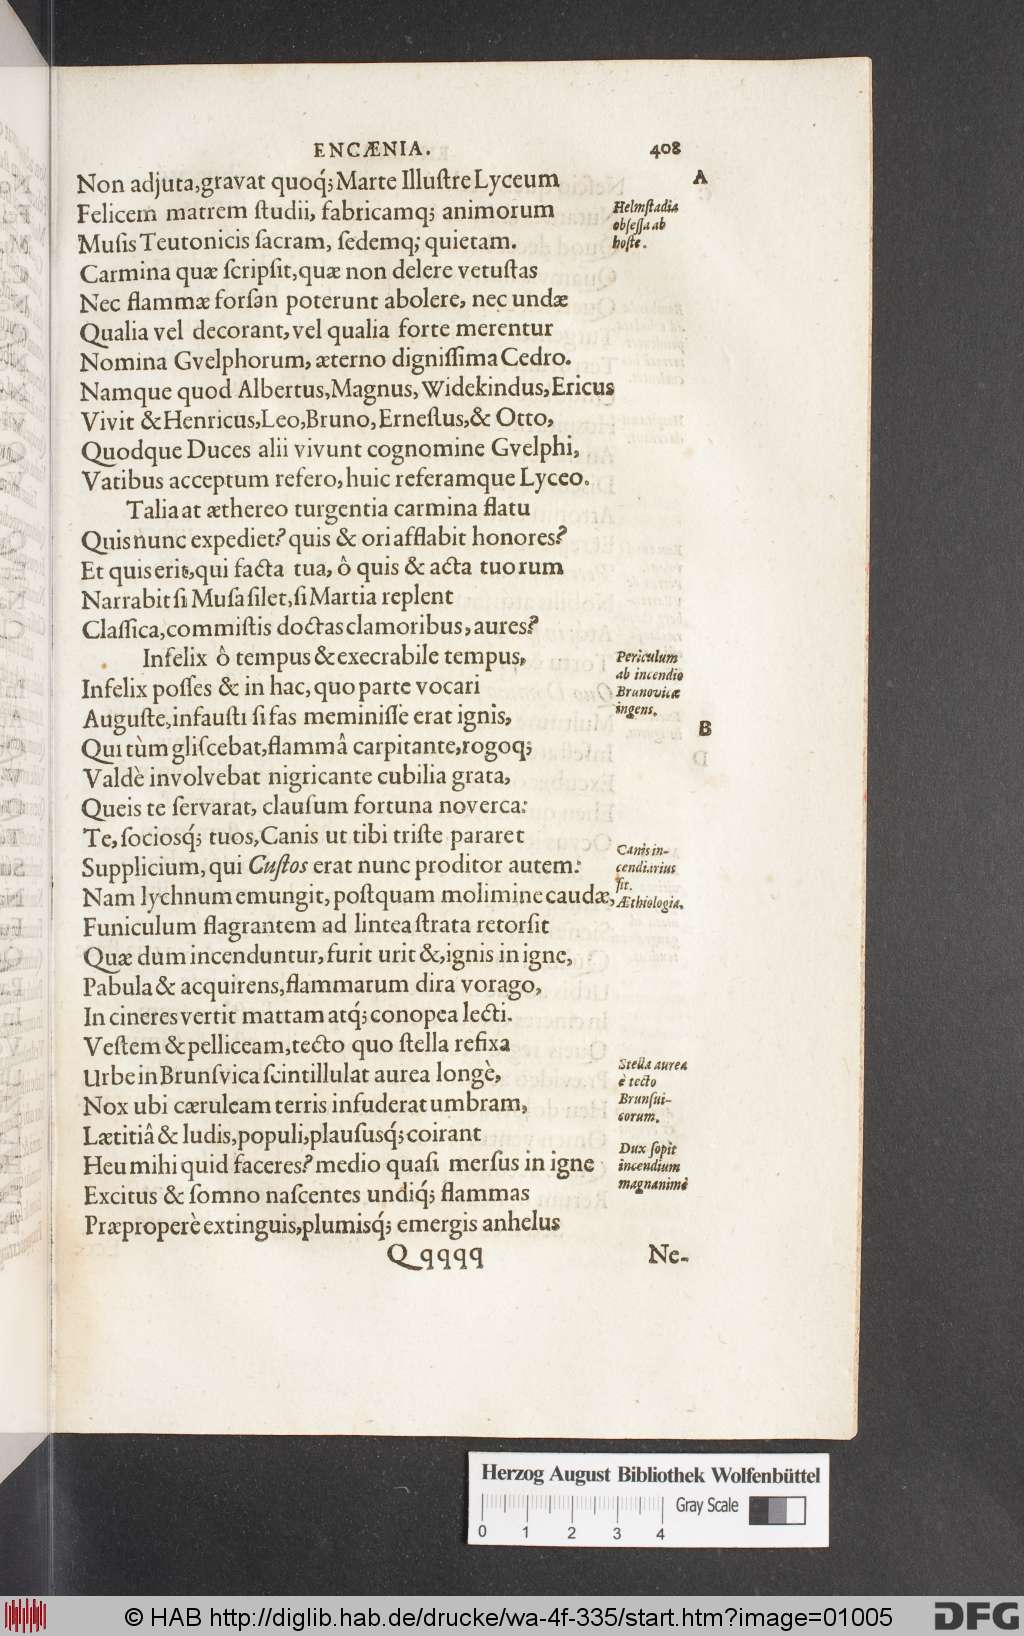 ENCÆNIA. 408
Non adjuta,gravat quoq́; Marte Illuſtre Lyceum A
Felicem matrem ſtudii, fabricamq; animorum
Muſis Teutonicis ſacram, ſedemq; quietam.
Helmſtadia
obſeſſa ab
hoſte.
Carmina quæ ſcripſit,quæ non delere vetuſtas
Nec flammæ forſan poterunt abolere, nec undæ
Qualia vel decorant,vel qualia forte merentur
Nomina Gvelphorum, æterno digniſſima Cedro.
Namque quod Albertus,Magnus,Widekindus,Ericus
Vivit & Henricus,Leo,Bruno,Erneſtus,& Otto,
Quodque Duces alii vivunt cognomine Gvelphi,
Vatibus acceptum refero,huic referamque Lyceo.
Talia at æthereo turgentia carmina flatu
Quis nunc expediet? quis & ori afflabit honores?
Et quis erit,qui facta tua, ô quis & acta tuorum
Narrabit ſi Muſa ſilet,ſi Martia replent
Claſſica,commiſtis doctas clamoribus,aures?
Infelix ô tempus & execrabile tempus,
Infelix poſſes & in hac, quo parte vocari
Auguſte,infauſti ſi fas meminiſſe erat ignis,
Periculum
ab incendio
Brunovicæ
ingens.
B
Qui tùm gliſcebat,flammâ carpitante,rogoq;
Valdè involvebat nigricante cubilia grata,
Queis te ſervarat, clauſum fortuna noverca:
Te, ſociosq́; tuos,Canis ut tibi triſte pararet
Supplicium, qui Cuſtos erat nunc proditor autem:
Nam lychnum emungit, poſtquam molimine caudæ,
Canis in-
cendiarius
fit.
Æthiologia.
Funiculum flagrantem ad lintea ſtrata retorſit
Quæ dum incenduntur,furit urit &,ignis in igne,
Pabula & acquirens,flammarum dira vorago,
In cineres vertit mattam atq́; conopea lecti.
Veſtem & pelliceam,tecto quo ſtella refixa
Urbe in Brunſvica ſcintillulat aurea longè,
Nox ubi cæruleam terris infuderat umbram,
Stella aurea
è tecto
Brunſui-
corum.
Lætitiâ & ludis,populi,plauſusq́; coirant
Heu mihi quid faceres? medio quaſi merſus in igne
Excitus & ſomno naſcentes undiq́; flammas
Dux ſopit
incendium
magnanimè
Præproperè extinguis,plumisq́; emergis anhelus
Qqqqq Ne-
Herzog August Bibliothek Wolfenbüttel
Gray Scale
0 1 2 3 4
© HAB http://diglib.hab.de/drucke/wa-4f-335/start.htm?image=01005
DFG